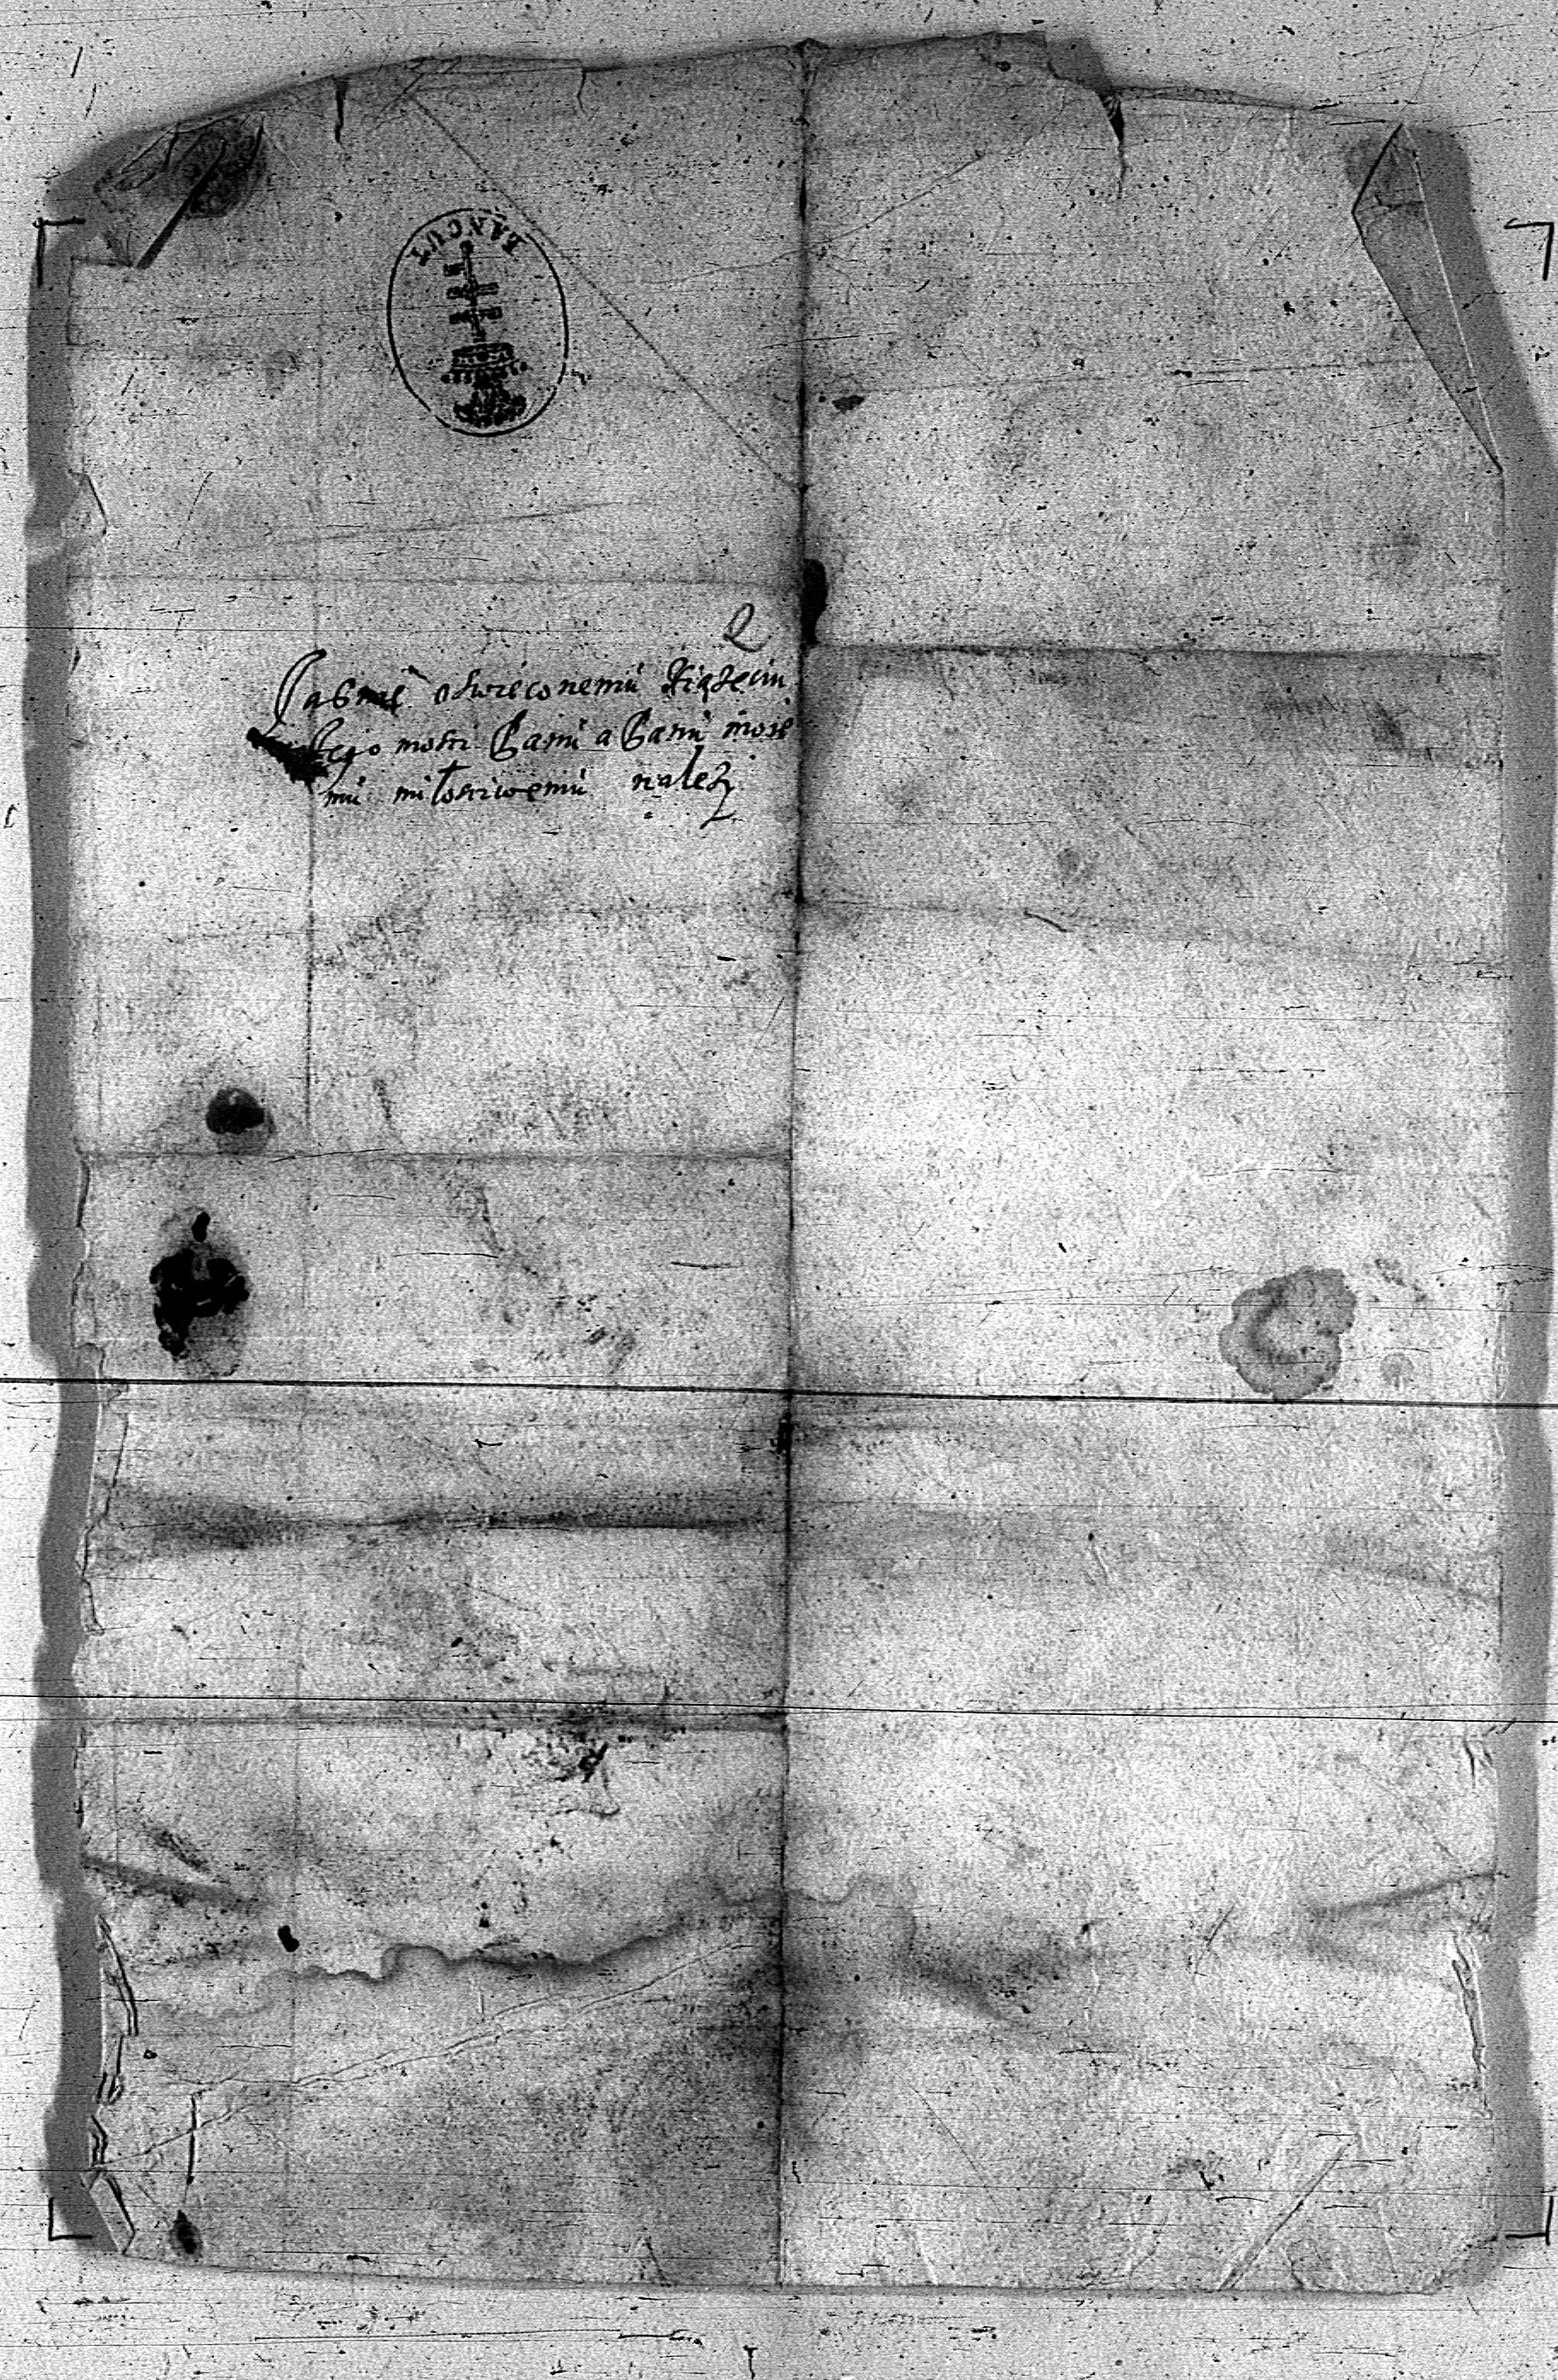 ŁAŃCUT
2
Jasnie oswieconemu Kiążęciu
Jego mosci Panu a Panu moie
mu miłosciwemu nalezy